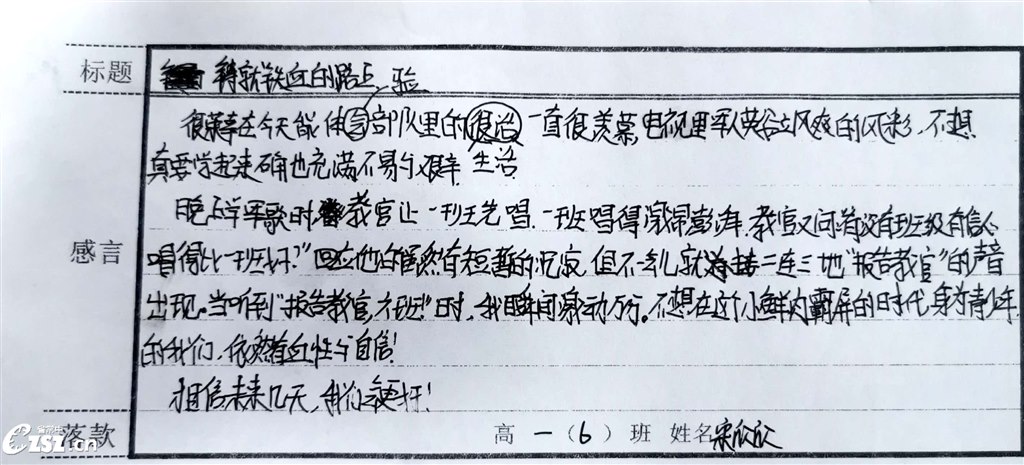 标题 铸就铁血的路上
验
很荣幸在今天能体会部队里的很活 一直很羡慕电视里军人英姿飒爽的风彩,不想
真要学起来确也充满不易与艰辛 生活
感言
晚上学军歌时教官让一班王先唱.一班唱得激昂澎湃.教官又问"有没有班级有信心
唱得比一班好?"回应他的虽然有短暂的沉寂,但不一会儿就接二连三地"报告教官"的声音
出现.当听到"报告教官,六班!"时,我瞬间激动万分.不想在这个小鲜肉霸屏的时代,身为青少年
的我们,依然有血性与自信!
相信未来几天,我们会更好!
落款 高一(6)班 姓名 宋欣欣
CZSZ.cn